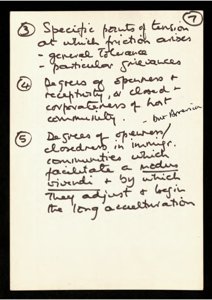 7
③ Specific points of tension
at which friction arises
- general tolerance
- particular grievances
④ Degrees of openness &
receptivity, or closed &
corporateness of host
community. - but American
⑤ Degrees of openness/
closedness in immigr.
communities which
facilitate a modus
vivendi & by which
they adjust & begin
the long acculturation